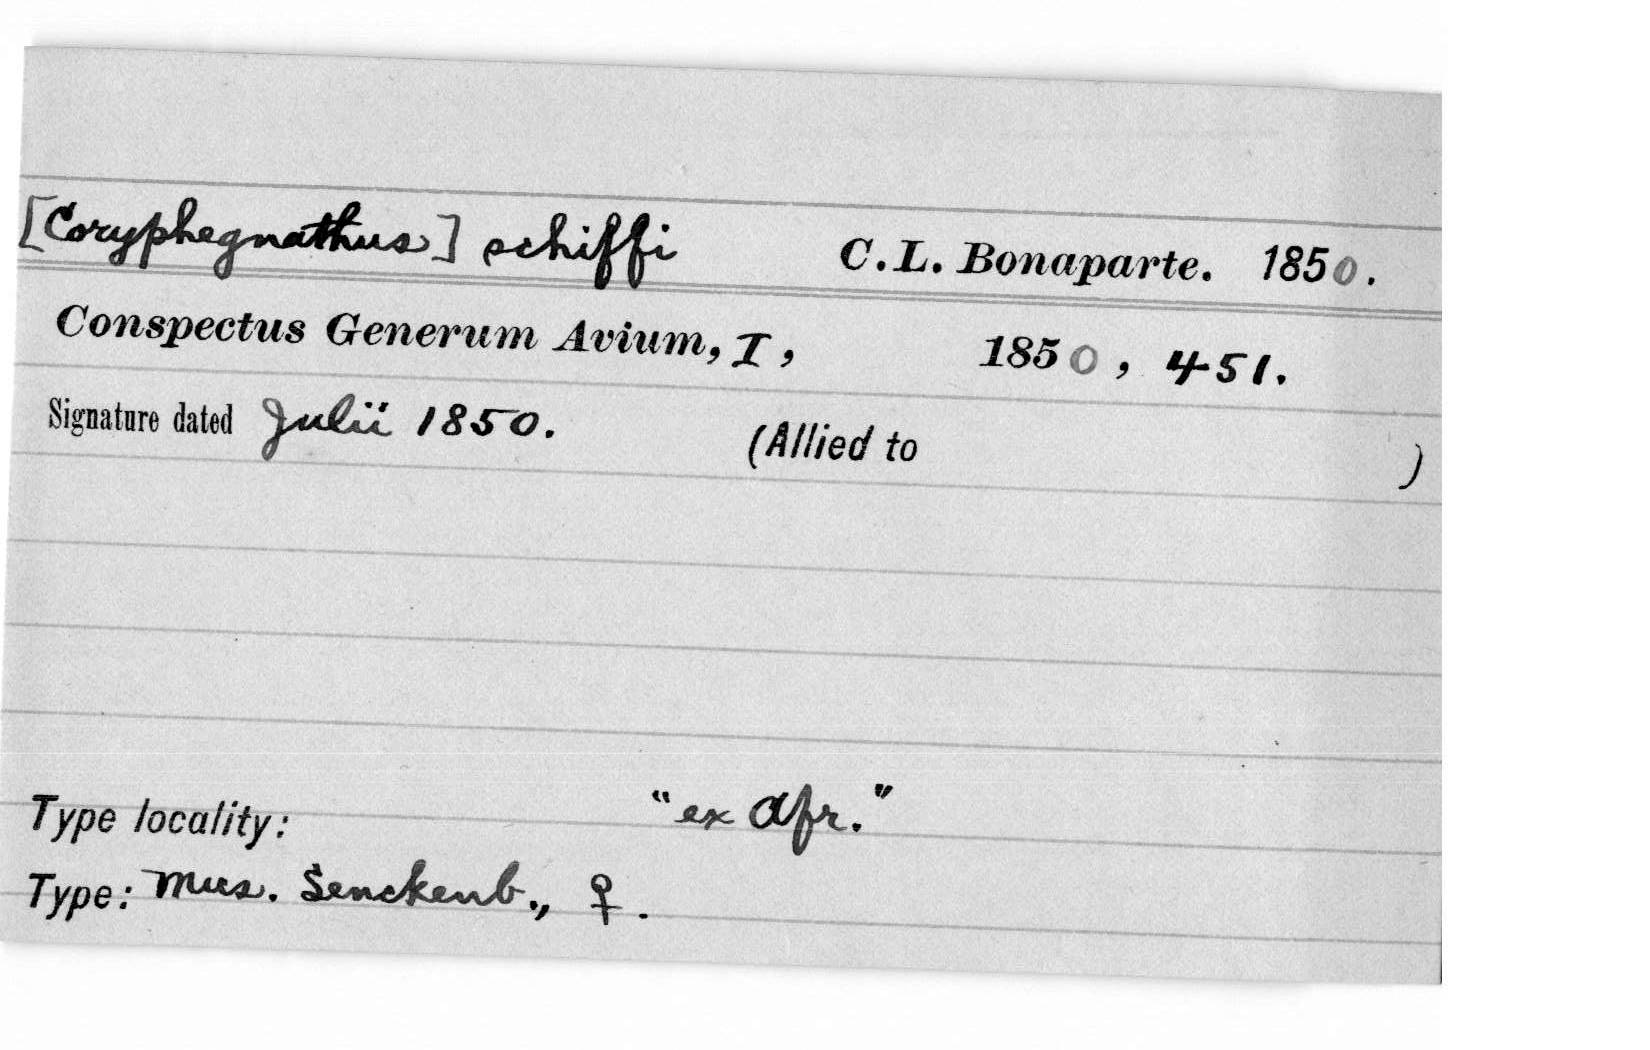 [Coryphegnathus] schiffi C.L. Bonaparte. 1850.
Conspectus Generum Avium, I, 1850, 451.
Signature dated Julii 1850. (Allied to )
Type locality: "ex Afr."
Type: Mus. Senckenb., ♀.